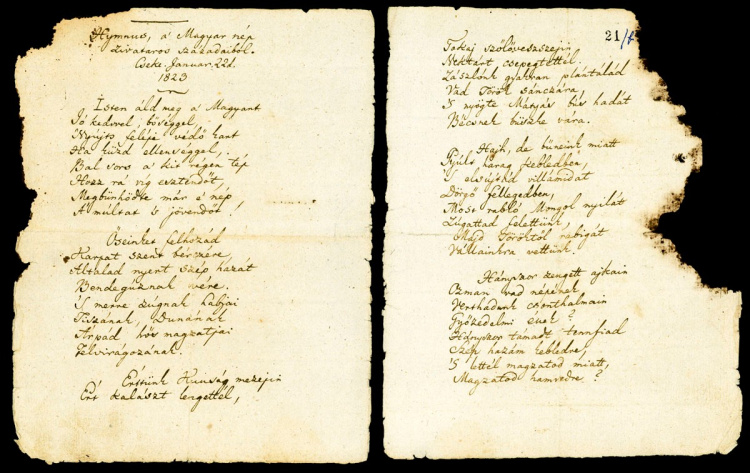 Hymnus, a' Magyar nép
zivataros századaiból.
Cseke. Januar. 22d.
1823
Isten áld meg a' Magyart
Jó kedvvel, bőséggel,
Nyújts feléje védő kart
Ha küzd ellenséggel;
Bal sors a' kit régen tép
Hozz rá víg esztendőt,
Megbűnhődte már e' nép
A' múltat 's jövendőt!
Őseinket felhozád
Kárpát szent bérczére,
Általad nyert szép hazát
Bendegúznak vére.
'S merre zúgnak habjai
Tiszának, Dunának
Árpád hős magzatjai
Felvirágozának.
Értünk Kunság mezején
Ért kalászt lengettél,
21/1
Tokaj szőlővesszején
Nektárt csepegtettél.
Zászlónk gyakran plántálád
Vad Török sánczára,
'S nyögte Mátyás bús hadát
Bécsnek büszke vára.
Hajh, de bűneink miatt
Gyúlt harag kebledben,
'S elsújtád villámidat
Dörgő fellegedben,
Most rabló Mongol nyilát
Zúgattad felettünk,
Majd Töröktől rabigát
Vállainkra vettünk.
Hányszor zengett ajkain
Ozman vad népének
Vert hadunk csonthalmain
Győzedelmi ének?
Hányszor támadt tennfiad
Szép hazám kebledre,
'S lettél magzatod miatt,
Magzatod hamvedre?